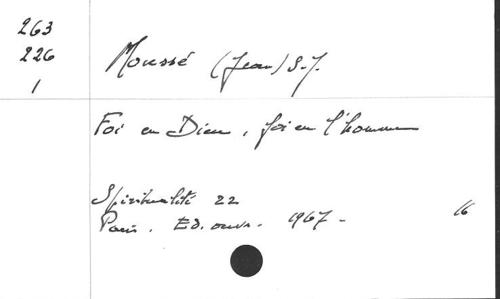 263
226
1
Moussé (Jean) S.J.
Foi en Dieu, foi en l'homme
Spiritualité 22
Paris. Ed. ouvr. 1967 - 16